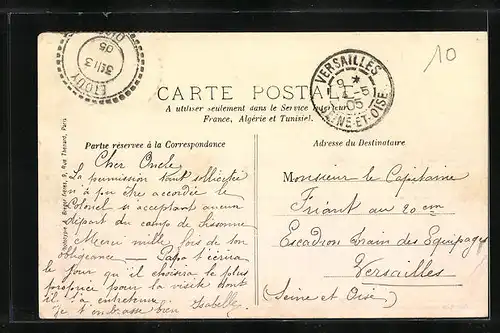 10
VERSAILLES
9 *
5
05
SEINE-ET-OISE
05
CARTE POSTALE
A utiliser seulement dans le Service intérieur
France, Algérie et Tunisie).
Partie réservée à la Correspondance
Adresse du Destinataire
Phototypie A. Breger frères, 9, Rue Thénard, Paris
Cher Oncle
La permission tant sollicitée
n'a pu être accordée le
Colonel n'acceptant aucun
départ du camp de Sissonne
Merci mille fois de ton
obligeance — Papa t'écrira
le jour qu'il choisira le plus
propice pour la visite dont
il t'a entretenu.
Je t'embrasse bien Isabelle
Monsieur le Capitaine
Friant au 20em
Escadron Train des Equipages
Versailles
(Seine et Oise)